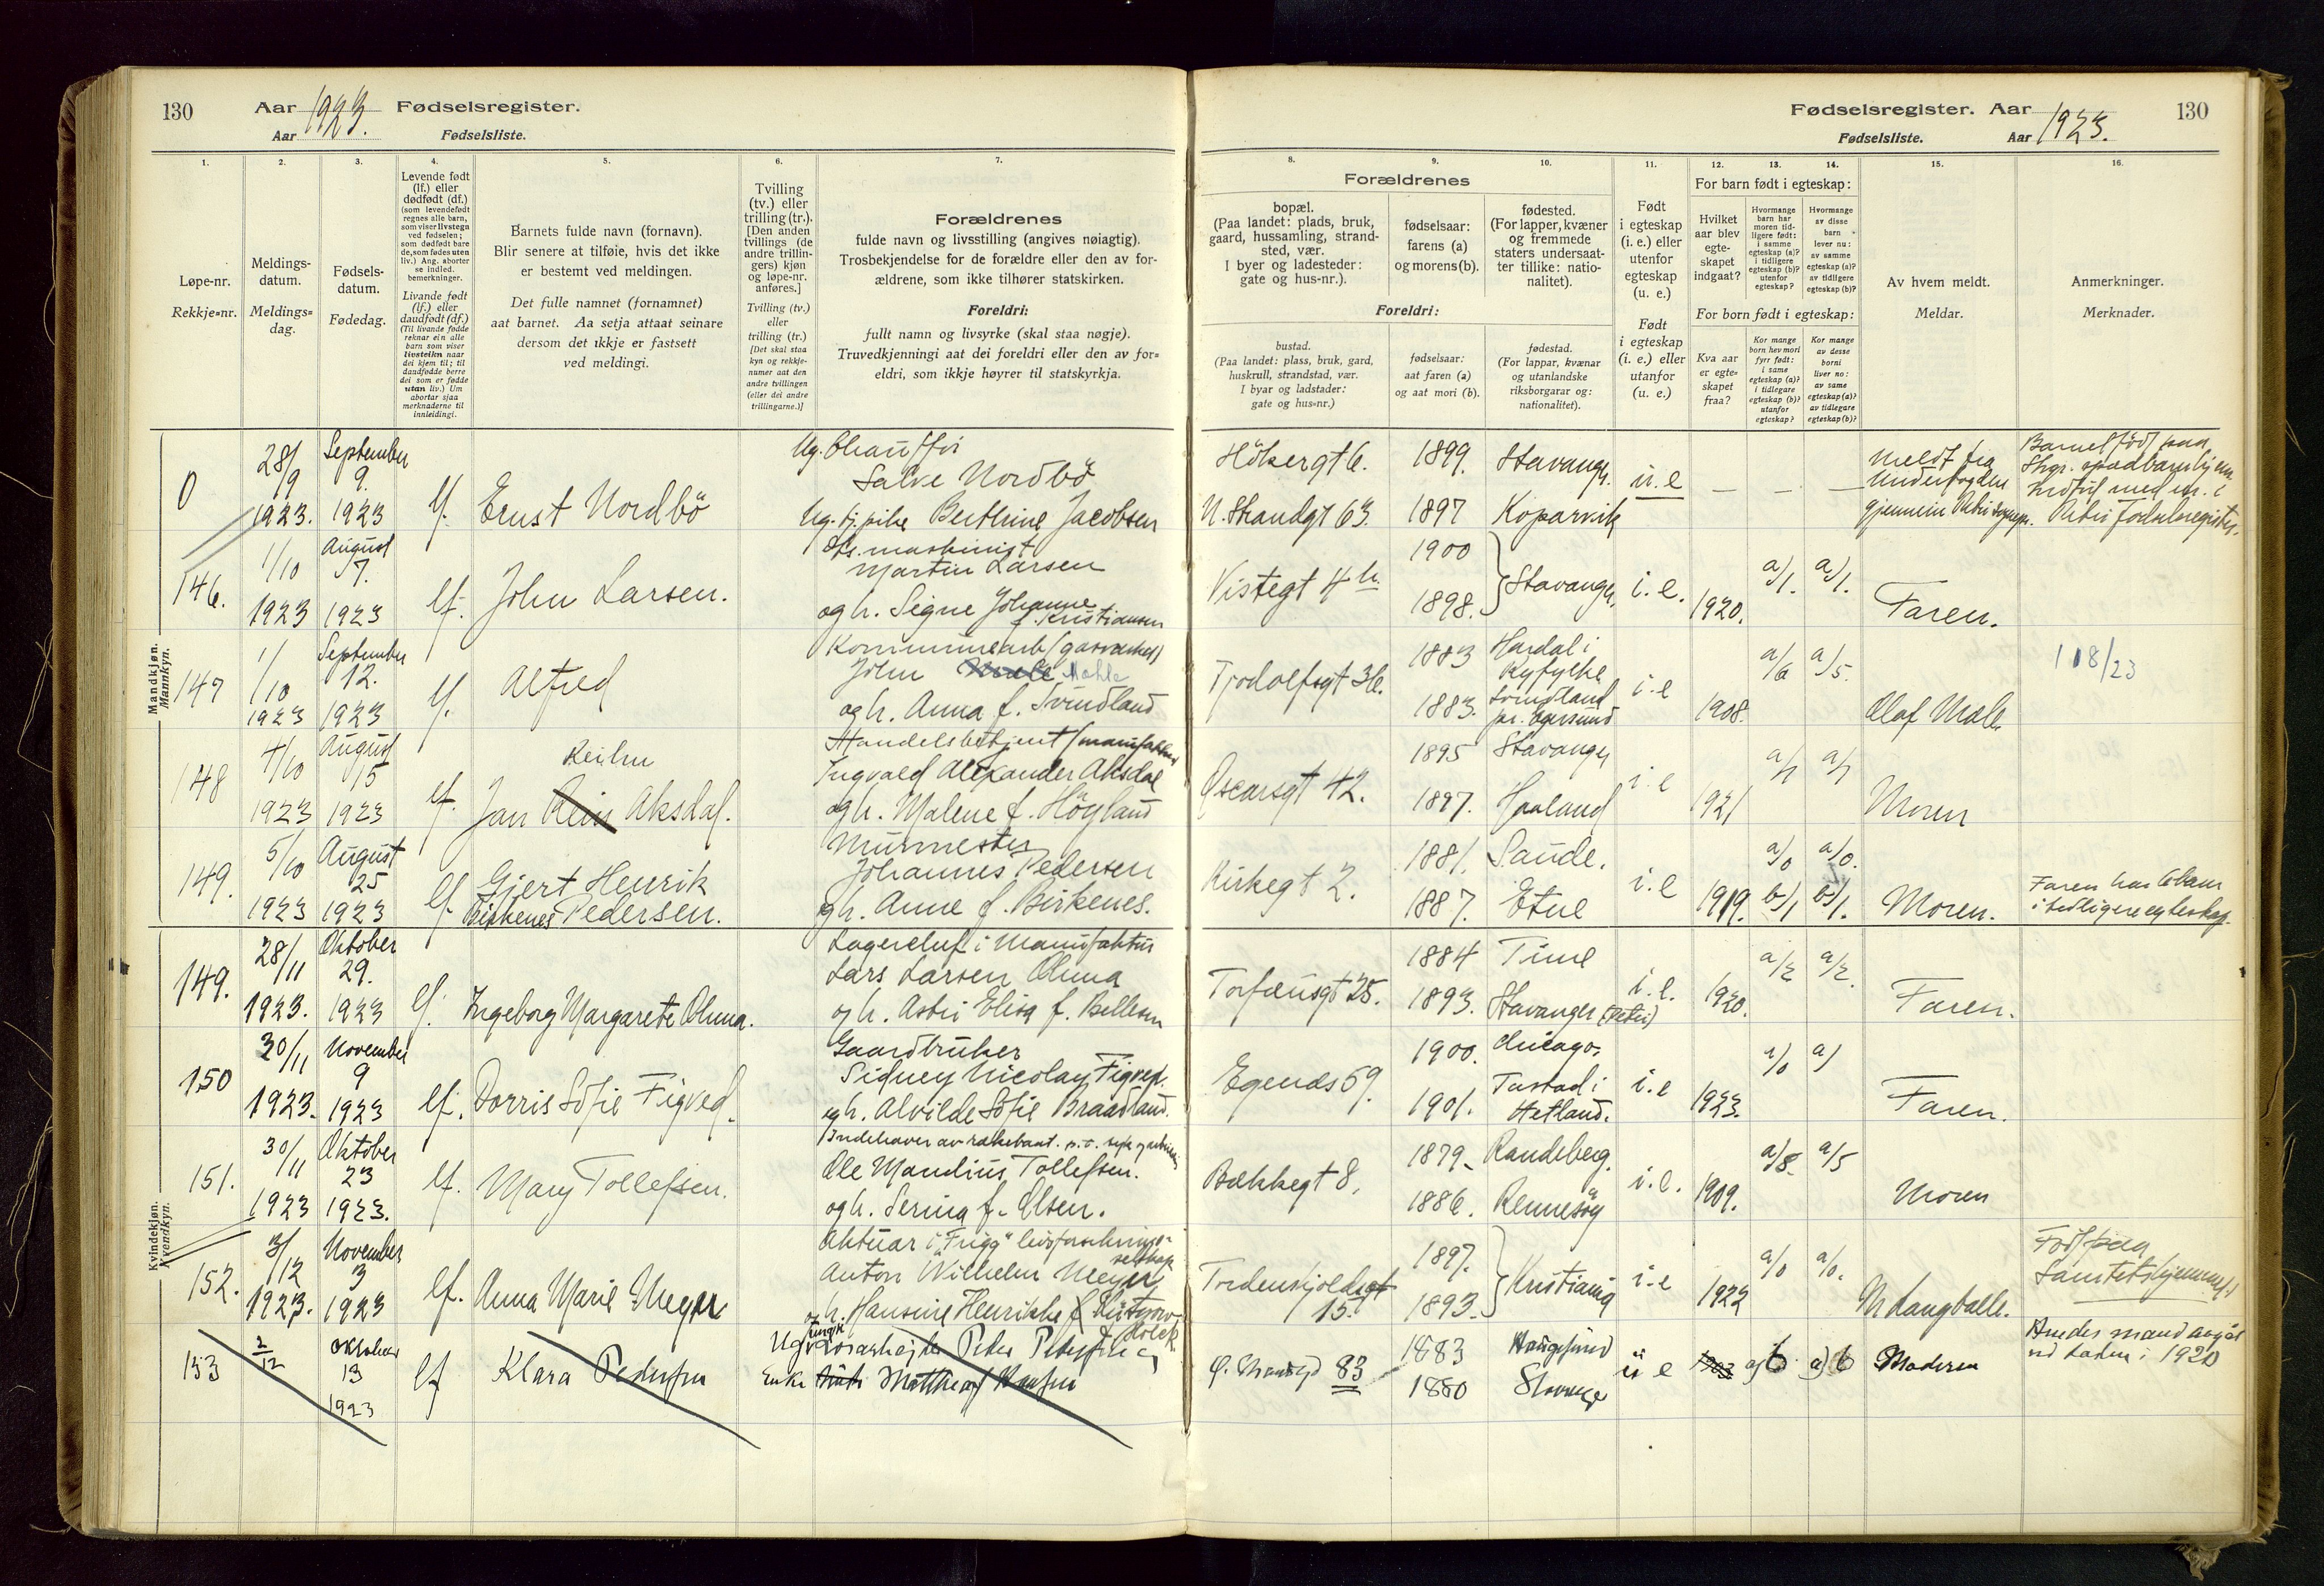 130 Aar 1923. Fødselsregister.
Aar Fødselsliste.
1. 2. 3. 4. 5. 6. 7.
Løpe-nr.
Rekkje=nr.
Meldings-
datum.
Meldings=
dag.
Fødsels-
datum.
Fødedag.
Levende født
(lf.) eller
dødfødt (df.)
(som levendefødt
regnes alle barn,
som viser livstegn
ved fødselen;
som dødfødt bare
de, som fødes uten
liv.) Ang. aborter
se indled.
bemerkninger.
Livande født
(lf.) eller
daudfødt (df.)
(Til livande fødde
reknar ein alle
barn som viser
livsteikn naar
dei kjem til; til
daudfødde berre
dei som er fødde
utan liv.) Um
abortar sjaa
merknaderne til
innleidingi.
Barnets fulde navn (fornavn).
Blir senere at tilføie, hvis det ikke
er bestemt ved meldingen.
Det fulle namnet (fornamnet)
aat barnet. Aa setja attaat seinare
dersom det ikkje er fastsett
ved meldingi.
Tvilling
(tv.) eller
trilling (tr.).
[Den anden
tvillings (de
andre trillin-
gers) kjøn
og løpe-nr.
anføres.]
Tvilling (tv.)
eller
trilling (tr.)
[Det skal staa
kyn og rekkje-
numer aat den
andre tvillingen
(eller dei andre
trillingarne.)]
Forældrenes
fulde navn og livsstilling (angives nøiagtig).
Trosbekjendelse for de forældre eller den av for-
ældrene, som ikke tilhører statskirken.
Foreldri:
fullt namn og livsyrke (skal staa nøgje).
Truvedkjenningi aat dei foreldri eller den av for=
eldri, som ikkje høyrer til statskyrkja.
0 28/9 1923. September 9. 1923 lf. Ernst Nordbö
Ug. Chaufför
Salve Nordbö
Ug. tj.pike Berthine Jacobsen
146. 1/10 1923 August 7. 1923 lf. John Larsen.
maskinist
Martin Larsen
og h. Signe Johanne
f. Kristiansen
Mandkjøn.
Mannkyn.
147 1/10 1923 September 12. 1923 lf. Alfred
Kommunearb (gasverket)
John Male Mahle
og h. Anna f. Svindland
148 4/10 1923 August 15 1923 lf. Jan Rein Aksdal.
Handelsbetjent (manufaktur)
Ingvald Alexander Aksdal
og h. Malene f. Höyland
149. 5/10 1923 August 25 1923 lf. Gjert Henrik
Birkenes Pedersen.
Murmester
Johannes Pedersen
og h. Anne f. Birkenes.
149. 28/11 1923. Oktober 29. 1923 lf. Ingeborg Margarete Ohma.
Lagerchef i Manufaktur
Lars Larsen Ohma
og h. Astri Elisa f. Bellesen
150 30/11 1923. November 9 1923 lf. Dorris Sofie Figved.
Gaardbruker
Sidney Nicolay Figved.
og h. Alvilde Sofie Braadland.
Kvindekjøn.
Kvendikyn.
151. 30/11 1923 Oktober 23 1923. lf. Mary Tollefsen.
Indehaver av
Ole Mandius Tollefsen.
og h. Serina f. Olsen.
152. 3/12 1923. November 3 1923 lf. Anna Marie Meyer
Aktuar i "Frigg" livsforsikrings-
selskap
Anton Wilhelm Meyer
og h. Hansine Henrikke f.
Holck.
153 2/12 Oktober 13 1923 lf Klara Pedersen
Peder Pedersen og
Enke Matthea f Hansen
Fødselsregister. Aar 1923. 130
Fødselsliste. Aar
8. 9. 10. 11. 12. 13. 14. 15. 16.
Forældrenes
bopæl.
(Paa landet: plads, bruk,
gaard, hussamling, strand-
sted, vær.
I byer og ladesteder:
gate og hus-nr.).
fødselsaar:
farens (a)
og morens (b).
fødested.
(For lapper, kvæner
og fremmede
staters undersaat-
ter tillike: natio-
nalitet).
Foreldri:
bustad.
(Paa landet: plass, bruk, gard,
huskrull, strandstad, vær.
I byar og ladstader:
gate og hus=nr.)
fødselsaar:
aat faren (a)
og aat mori (b).
fødestad.
(For lappar, kvænar
og utanlandske
riksborgarar og:
nationalitet).
Født
i egteskap
(i. e.) eller
utenfor
egteskap
(u. e.)
Født
i egteskap
(i. e.) eller
utanfor
(u. e.)
For barn født i egteskap:
Hvilket
aar blev
egte-
skapet
indgaat?
Hvormange
barn har
moren tid-
ligere født:
i samme
egteskap (a)?
i tidligere
egteskap (b)?
utenfor
egteskap?
Hvormange
av disse
barn
lever nu:
av samme
egteskap (a)?
av tidligere
egteskap (b)?
For born født i egteskap:
Kva aar
er egte=
skapet
fraa?
Kor mange
born hev mori
fyrr født:
i same
egteskap (a)?
i tidlegare
egteskap (b)?
utanfor
egteskap?
Kor mange
av desse
borni
liver no:
av same
egteskap (a)?
av tidlegare
egteskap (b)?
Av hvem meldt.
Meldar.
Anmerkninger.
Merknader.
Hökergt 6. 1899. Stavanger u. e — — —
N. Strandgt 63. 1897 Koparvik
Meldt fra
Underfogden
gjennem Petri sognep.
Barnet født paa
Stvgr. spædbarnhjem
Indført med nr. i
Petri fødselsregister.
Vistegt 4 h. 1900 1898. Stavanger. i. e. 1920. a/1. a/1. Faren.
Tjodolfsgt 36. 1883 Hardal i
Ryfylke
1883. Svindland
pr. Egersund
i. e 1908. a/6 a/5. Olaf Male 118/23
Oscarsgt 42. 1895 Stavanger
1897. Haaland i. e 1921 a/1 a/1 Moren
Kirkegt 2. 1881. Saude.
1887. Etne i. e 1919. a/0 b/1 a/0. b/1. Moren.
Faren har 6 barn
i tidligere egteskap.
Torfæusgt 25. 1884 Time
1893. Stavanger (Petri) i. e. 1920. a/2 a/2. Faren.
Egenes 59. 1900. Chicago.
1901. Tastad i
Hetland. i. e 1923. a/0 a/ Faren.
Bækkegt 8. 1879. Randeberg.
1886. Rennesöy i. e. 1909. a/8. a/5 Moren
Tordenskjoldsgt
15. 1897. 1893. Kristiania i. e 1922 a/0 a/0. N Langballe.
Født paa
Sanitetshjemmet
Ø. Strandgd 83 1883 Haugesund
1880 Stavanger u e 1903 a) 6 a) 6 Moderen
Hendes mand avgik
ved døden i 1920